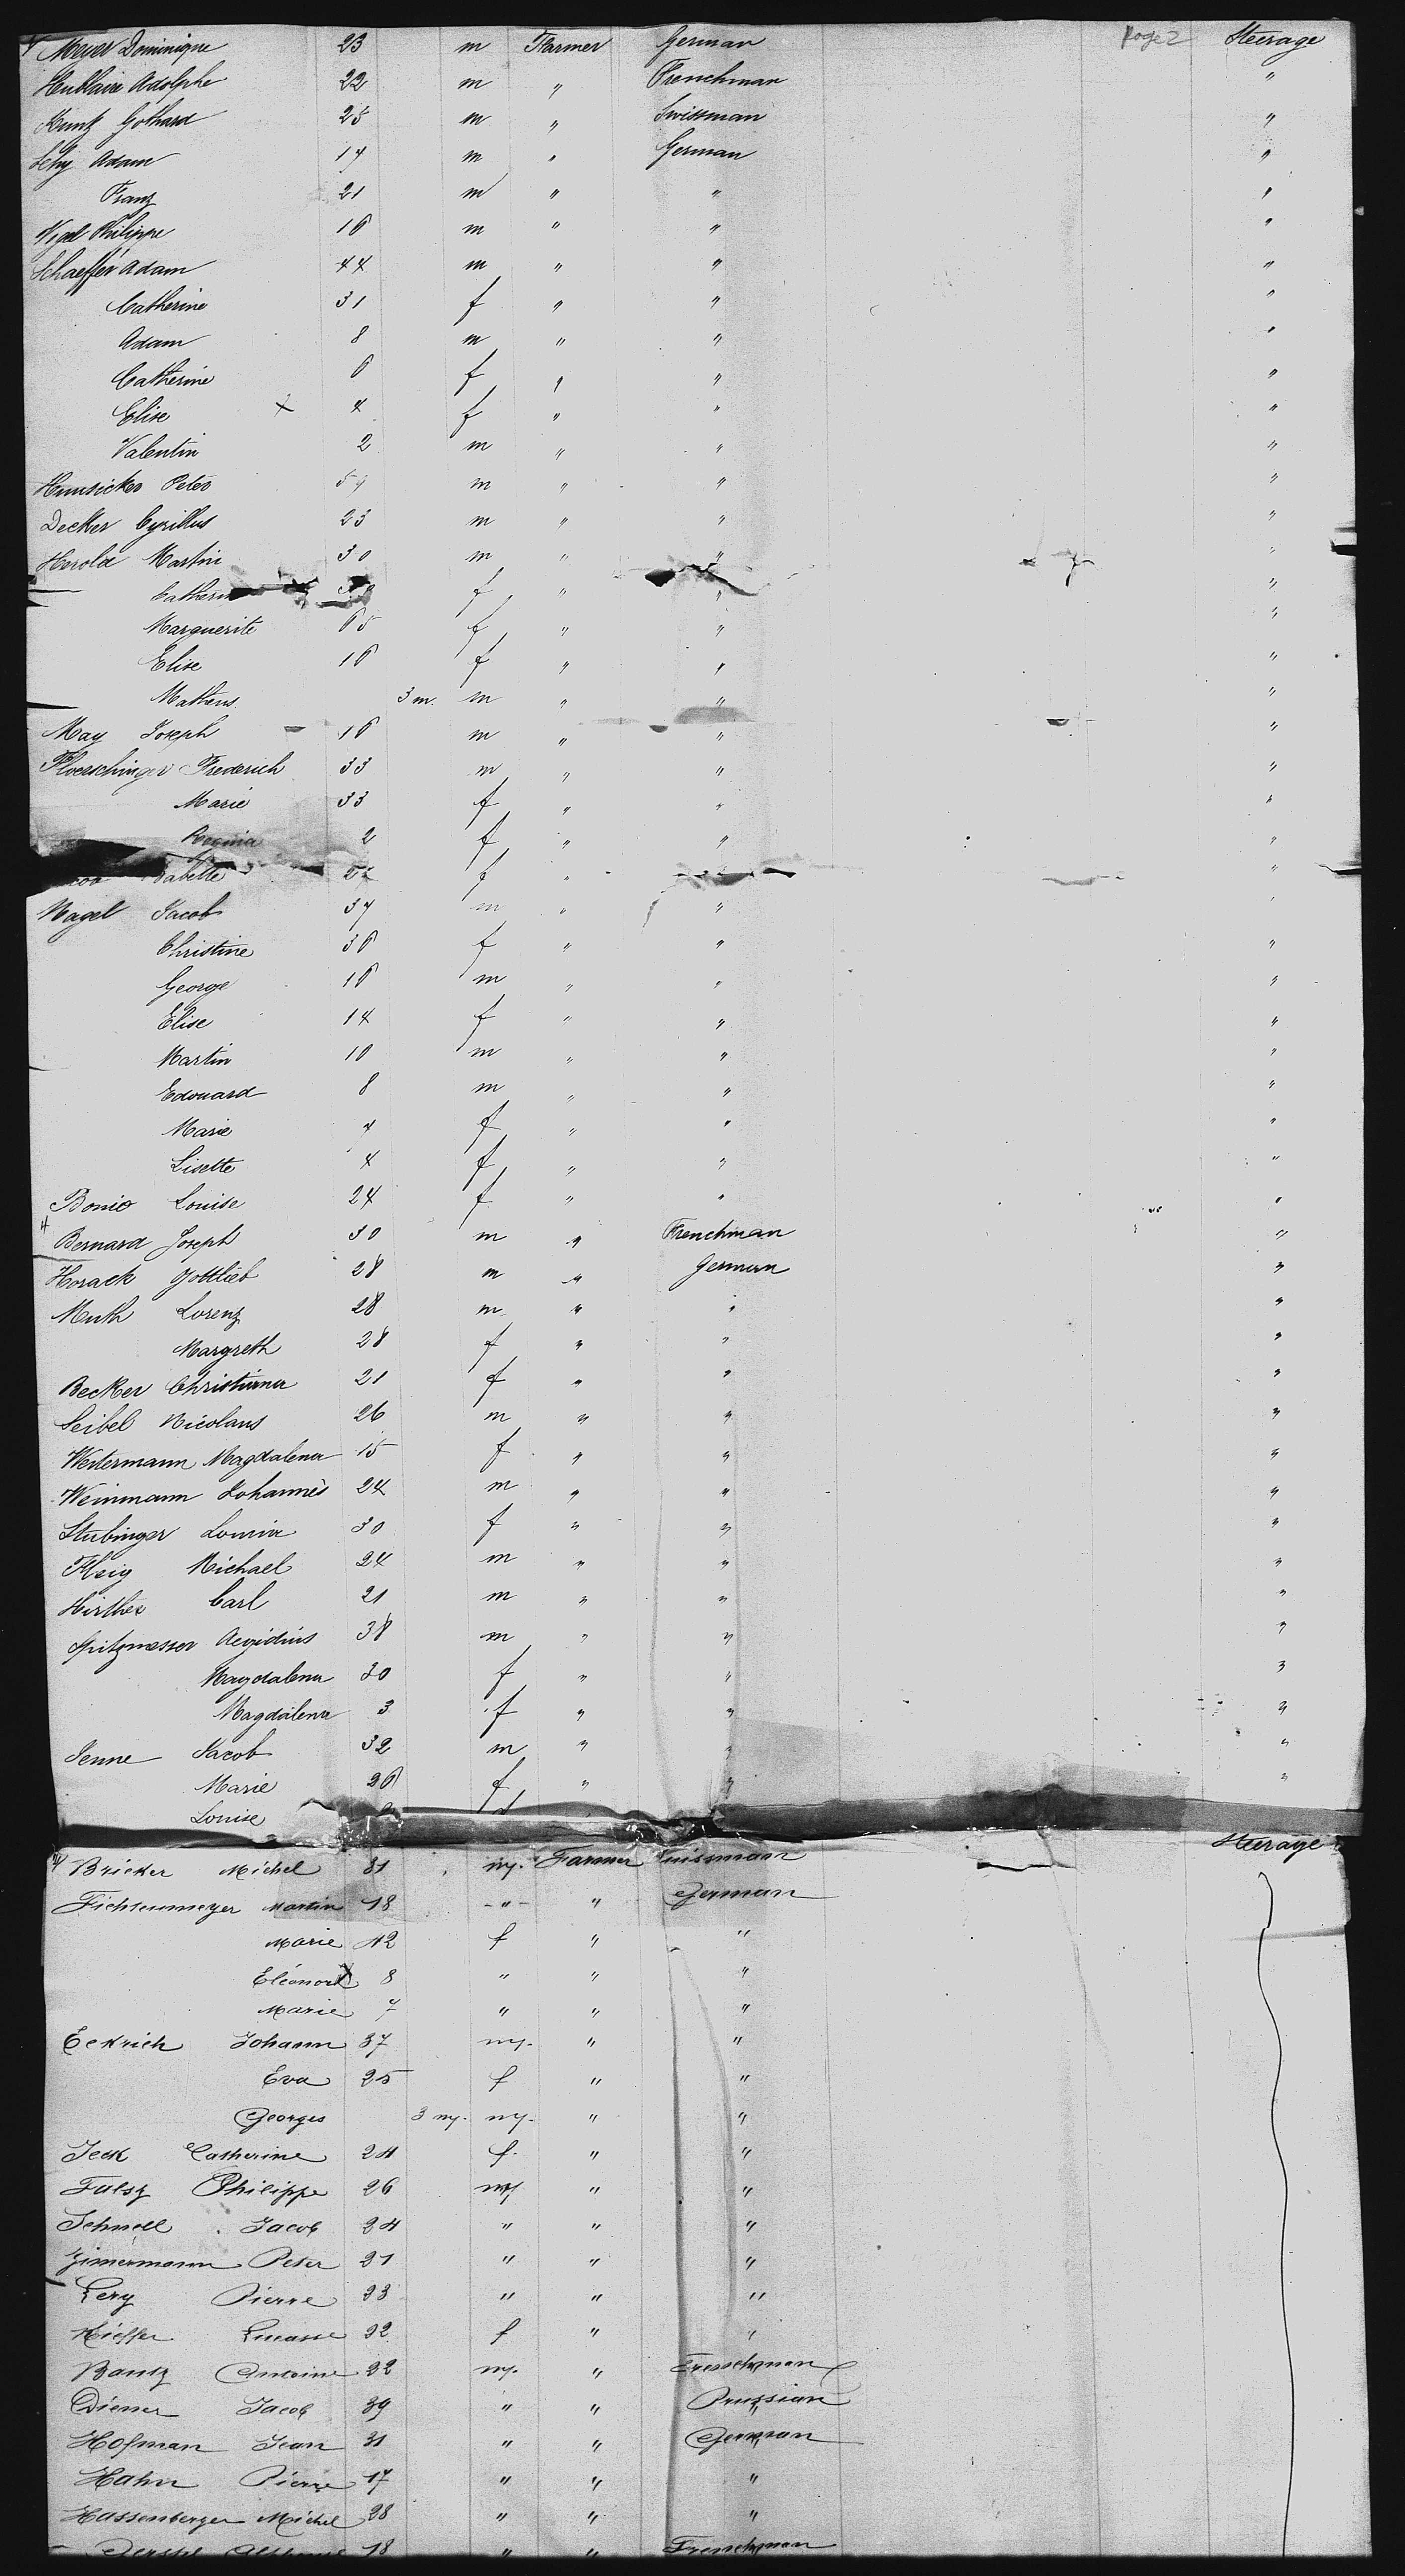 Meyer Dominique 23 m Farmer German Page 2 Steerage
Hublaire Adolphe 22 m " Frenchman "
Kuntz Gothard 25 m " Swissman "
Adam 17 m " German "
Franz 21 m " " "
Vigel Philippe 16 m " " "
Schaeffer Adam 44 m " " "
Catherine 31 f " " "
Adam 8 m " " "
Catherine 6 f " " "
Elise x 4 f " " "
Valentin 2 m " " "
Hunsicker Peter 59 m " " "
Decker Cyrillus 23 m " " "
Herold Martin 30 m " " "
Catherine f " " "
Marguerite 65 f " " "
Elise 16 f " " "
Matheus 3 m. m " " "
May Joseph 16 m " " "
Floerschinger Frederich 33 m " " "
Marie 33 f " " "
Regina 2 f " " "
Babette f " " "
Nagel Jacob 37 m " " "
Christine 36 f " " "
George 16 m " " "
Elise 14 f " " "
Martin 10 m " " "
Edouard 8 m " " "
Marie 7 f " " "
Lisette 4 f " " "
Bonio Louise 24 f " " "
Bernard Joseph 30 m " Frenchman "
Horack Gottlieb 28 m " German "
Muth Lorenz 28 m " " "
Margreth 28 f " " "
Becker Christiana 21 f " " "
Seibel Nicolaus 26 m " " "
Westermann Magdalena 15 f " " "
Weinmann Johannes 24 m " " "
Stubinger Louisa 30 f " " "
Fleig Michael 24 m " " "
Hirther Carl 21 m " " "
Spitznasser Aegidius 38 m " " "
Magdalena 30 f " " "
Magdalena 3 f " " "
Senne Jacob 32 m " " "
Marie 26 f " " "
Louise
Bricker Michel 31 m. Farmer Suissman Steerage
Fichtenmeyer Martin 18 - " - " German
Marie 42 f " "
Eléonore x 8 " " "
Marie 7 " " "
Eckrich Johann 37 m. " "
Eva 25 f " "
Georges 3 m. m. " "
Jeck Catherine 24 f. " "
Falsz Philippe 26 m " "
Schnell Jacob 24 " " "
Zimermann Peter 21 " " "
Lery Pierre 23 " " "
Kieffer Lucasse 32 f " "
Bantz Antoine 32 m. " Frenschman
Diener Jacob 39 " " Prussian
Hofman Jean 31 " " German
Hahn Pierre 17 " " "
Hassenberger Michel 28 " " "
18 " " Frenschman